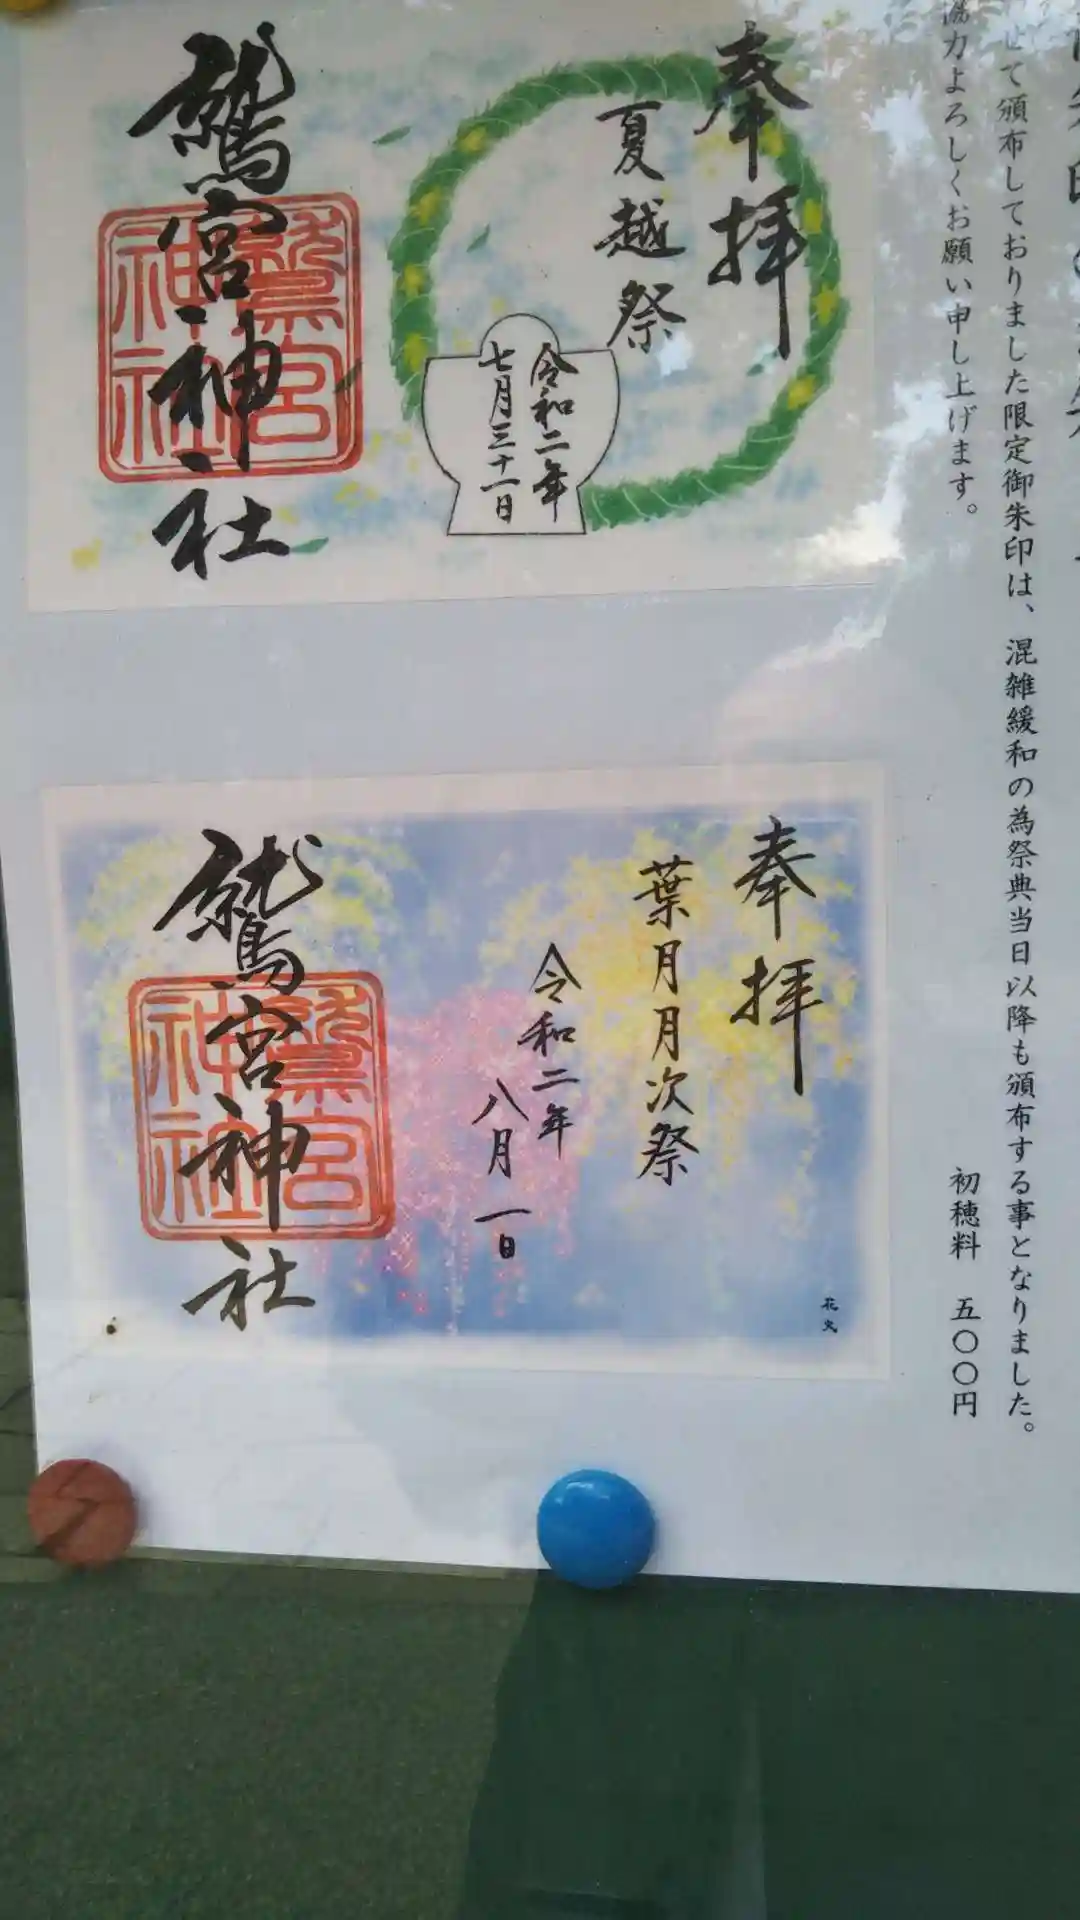 せて頒布しておりました限定御朱印は、混雑緩和の為祭典当日以降も頒布する事となりました。
協力よろしくお願い申し上げます。
初穂料 五〇〇円
奉拝
夏越祭
令和二年
七月三十一日
鷲宮神社
鷲宮
神社
奉拝
葉月月次祭
令和二年
八月一日
鷲宮神社
鷲宮
神社
花火